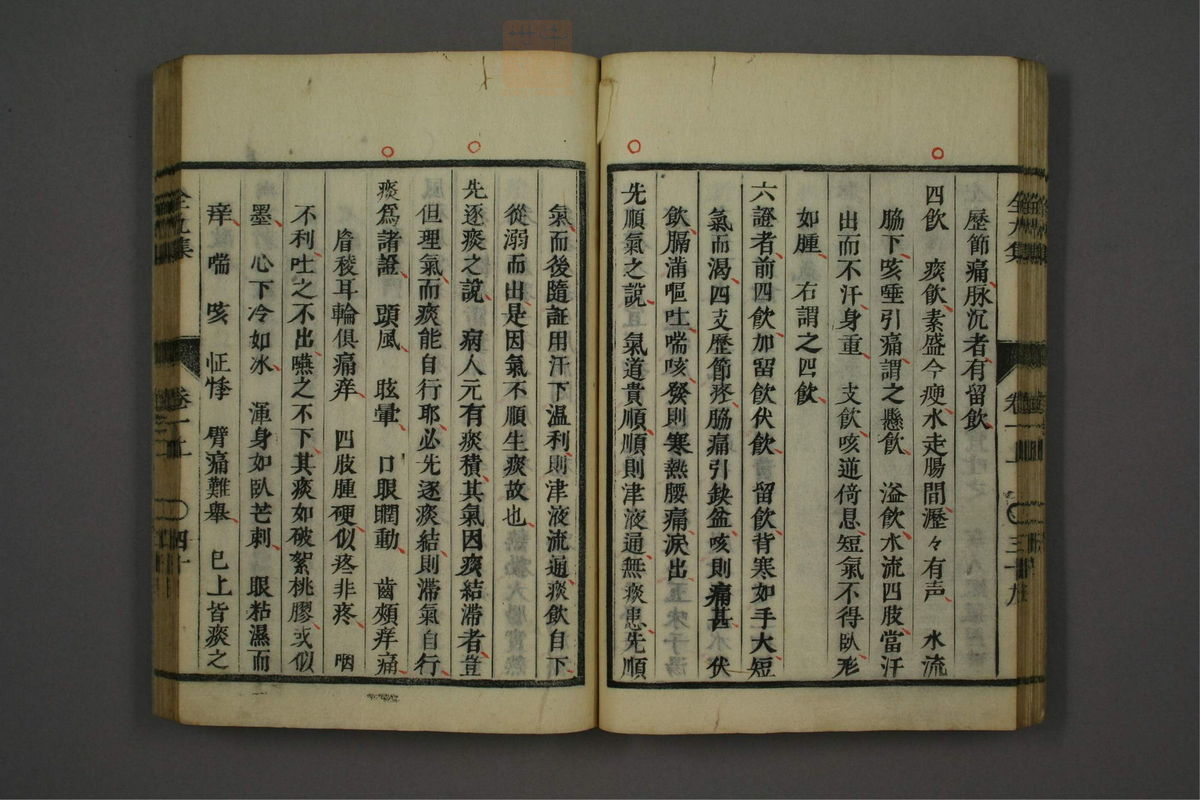 歷節痛脉沉者有留飲
四飲 痰飲素盛今瘦水走腸間瀝々有声 水流
脇下咳唾引痛謂之懸飲 溢飲水流四肢當汗
出而不汗身重 支飲咳逆倚息短氣不得臥形
如腫 右謂之四飲
六證者前四飲加留飲伏飲 留飲背寒如手大短
氣而渴四支歷節疼脇痛引缺盆咳則痛甚 伏
飲膈滿嘔吐喘咳發則寒熱腰痛淚出
先順氣之說 氣道貴順順則津液通無痰患先順
全九集 卷一上 三十九
氣而後隨証用汗下温利則津液流通痰飲自下
從溺而出是因氣不順生痰故也
先逐痰之說 病人元有痰積其氣因痰結滯者豈
但理氣而痰能自行耶必先逐痰結則滯氣自行
痰爲諸證 頭風 眩暈 口眼瞤動 齒頰痒痛
眉稜耳輪俱痛痒 四肢腫硬似疼非疼 咽
不利吐之不出嚥之不下其痰如破絮桃膠或似
墨 心下冷如冰 渾身如臥芒刺 眼粘濕而
痒 喘 咳 怔悸 臂痛難舉 已上皆痰之
全九集 卷一上 四十